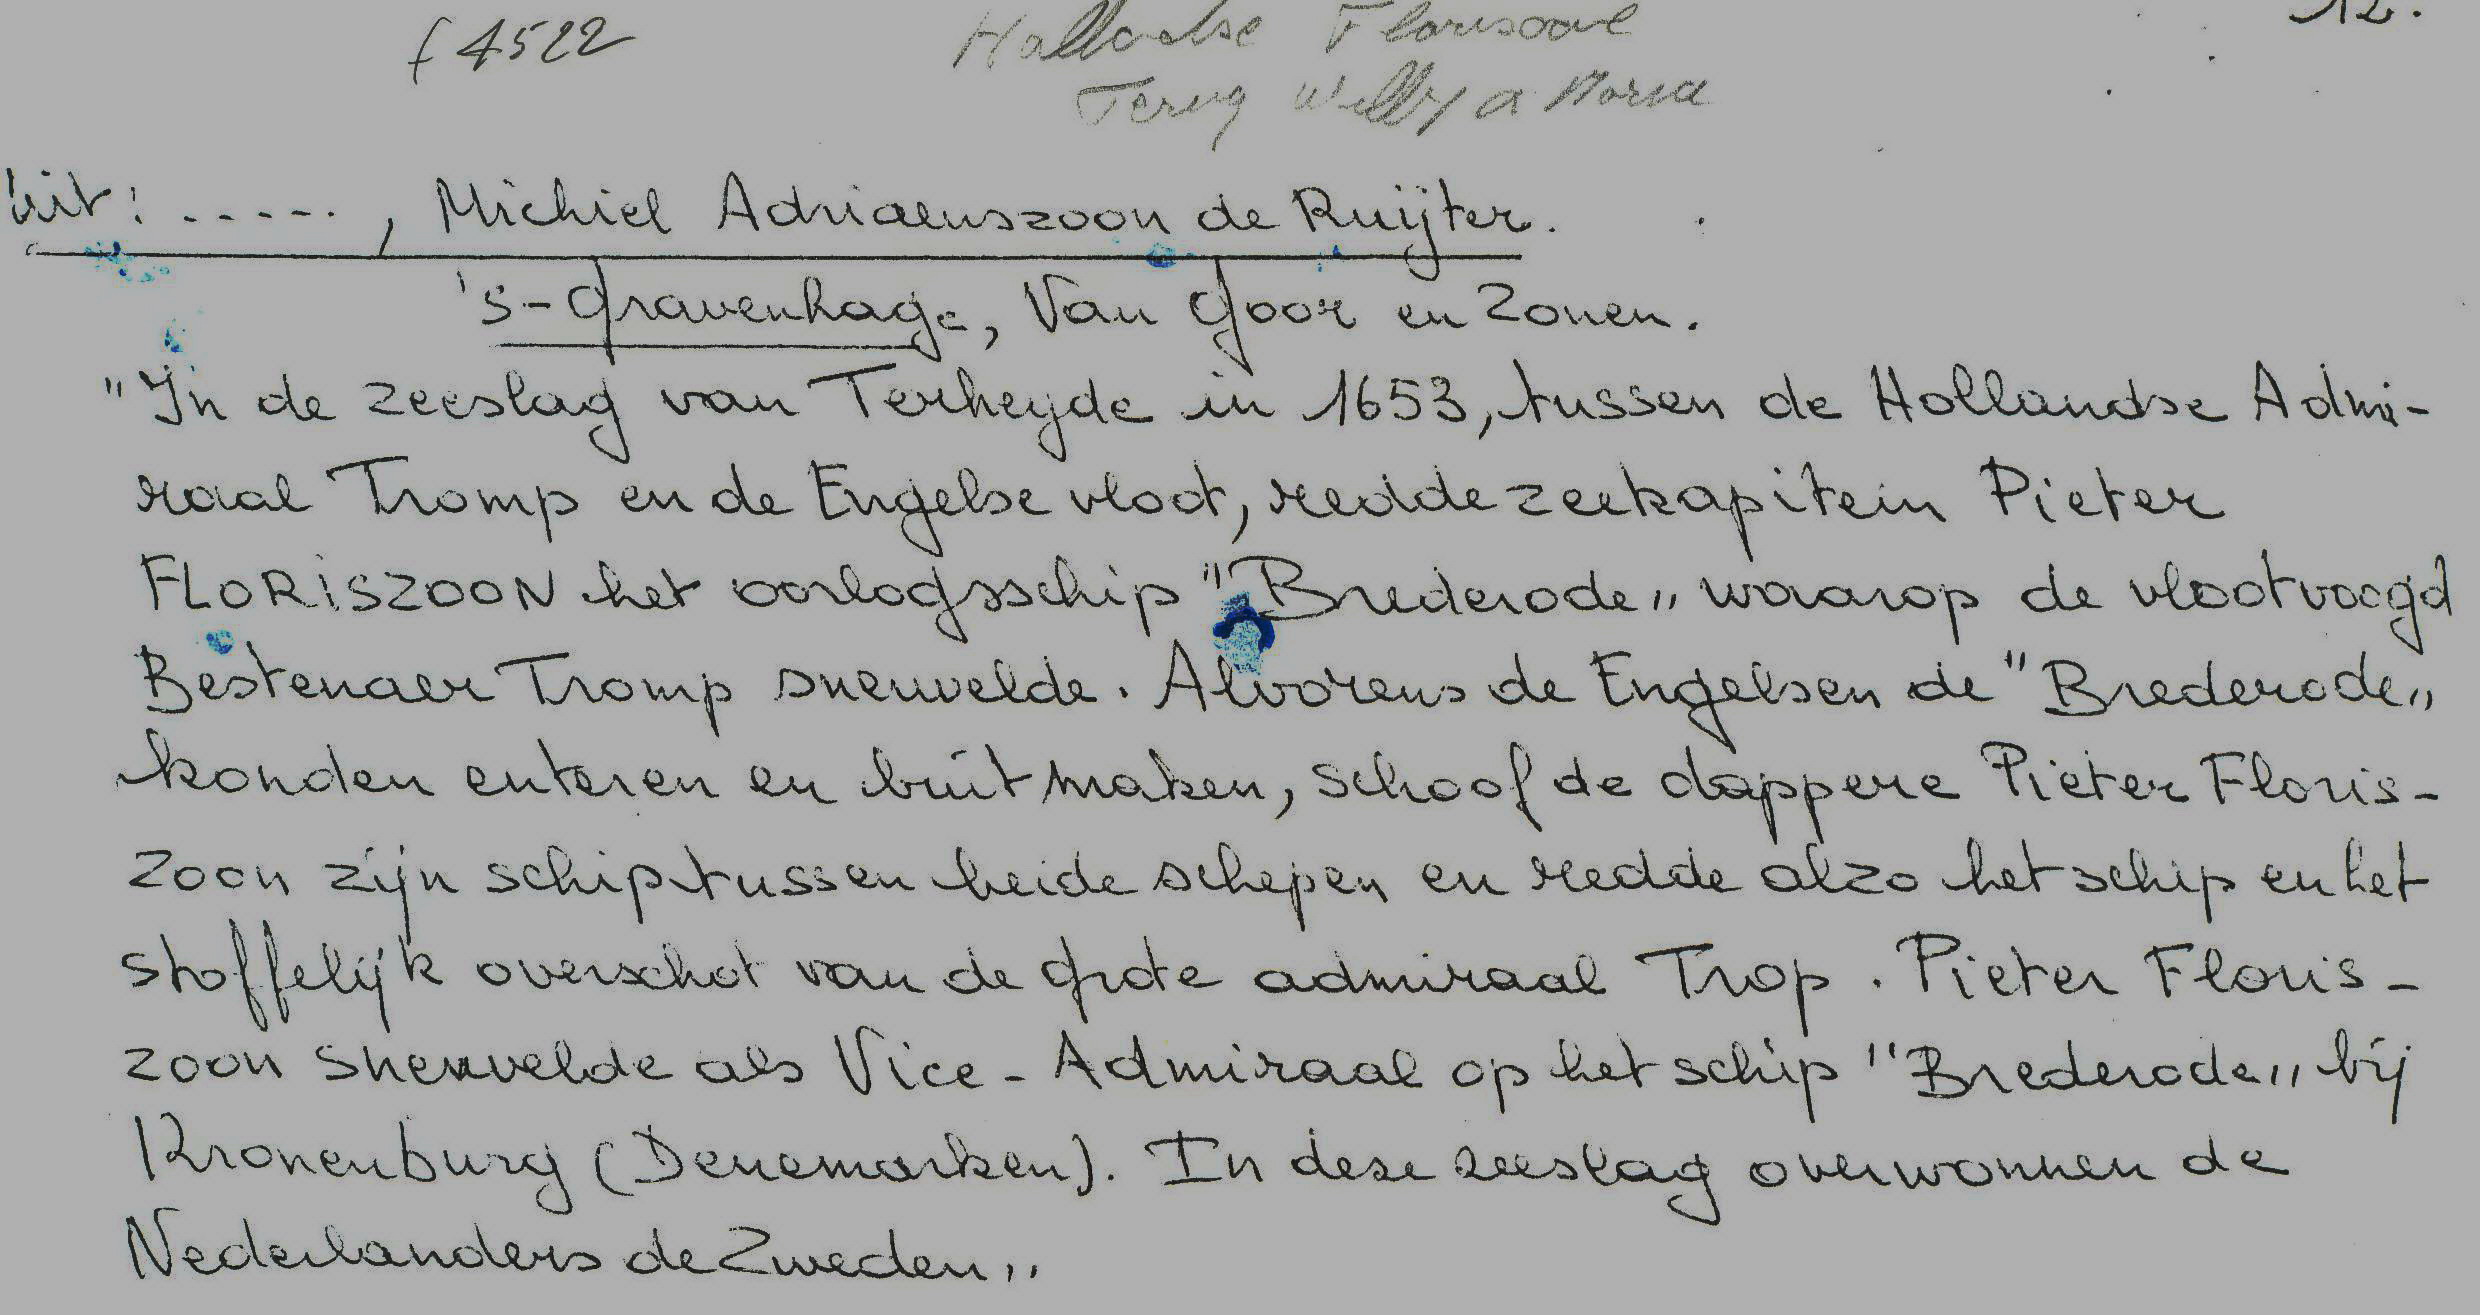 f 4522
12.
Hollandse
Terug Willy a Maria
Uit: ....., Michiel Adriaenszoon de Ruijter.
's-Gravenhage, Van Goor en Zonen.
"In de zeeslag van Terheyde in 1653, tussen de Hollandse Admi-
raal Tromp en de Engelse vloot, redde zeekapitein Pieter
FLORISZOON het oorlogsschip "Brederode" waarop de vlootvoogd
Bestenaer Tromp sneuvelde. Alvorens de Engelsen de "Brederode"
konden enteren en buit maken, schoof de dappere Pieter Floris-
zoon zijn schip tussen beide schepen en redde alzo het schip en het
stoffelijk overschot van de grote admiraal Trop. Pieter Floris-
zoon sneuvelde als Vice-Admiraal op het schip "Brederode" bij
Kronenburg (Denemarken). In deze zeeslag overwonnen de
Nederlanders de Zweden"